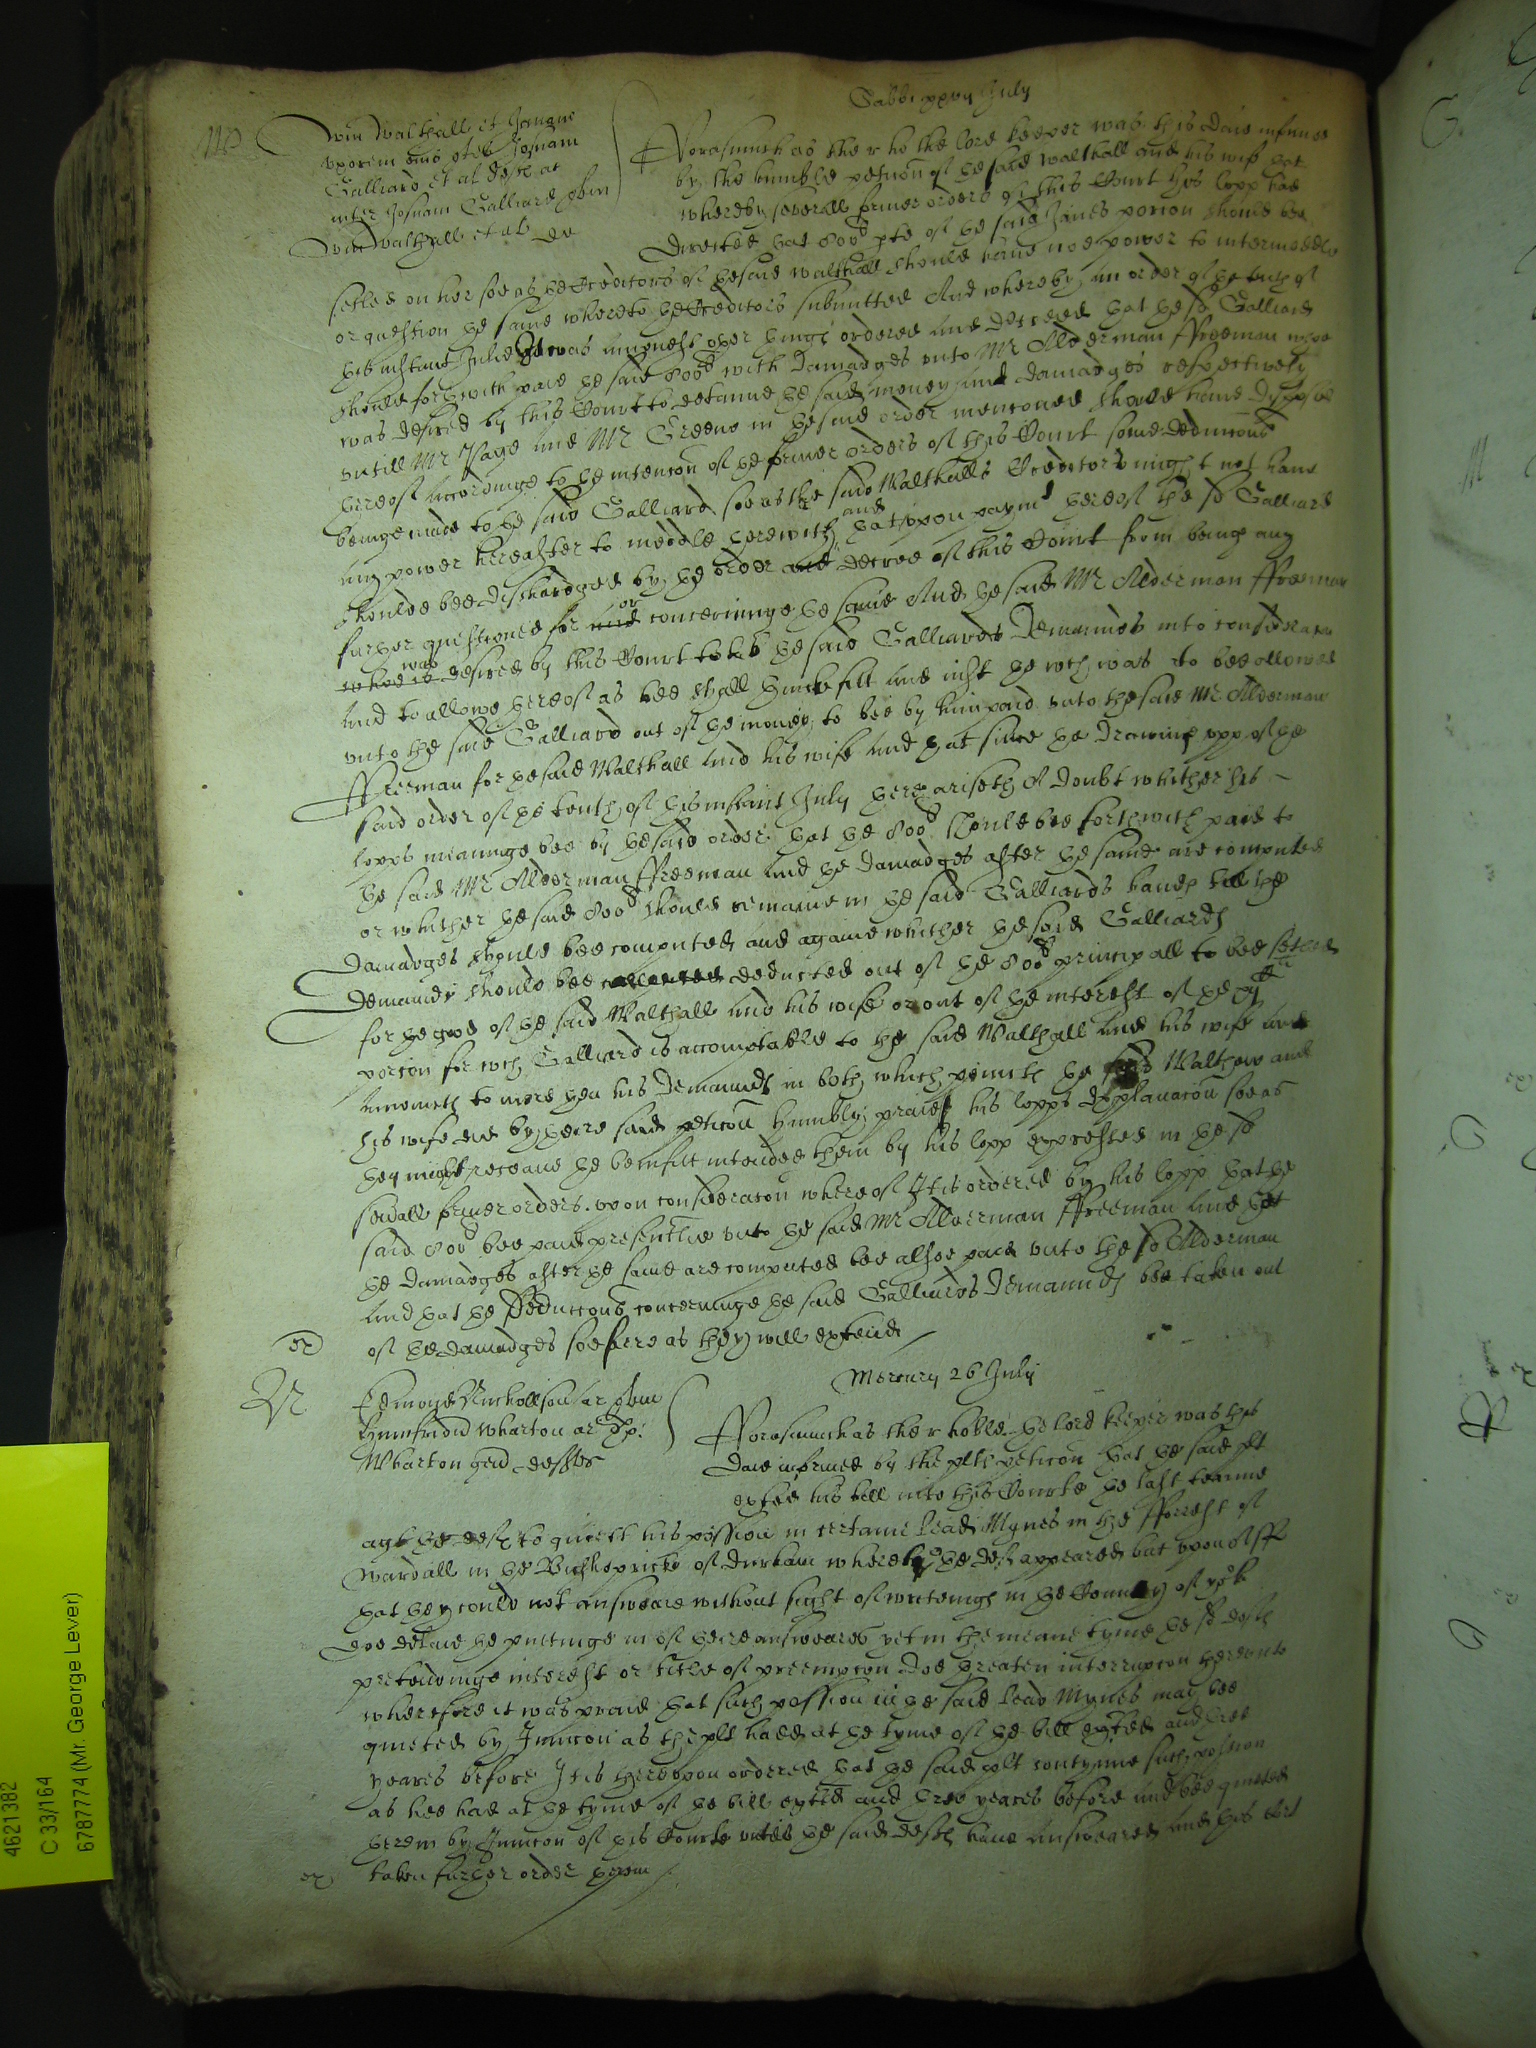 Sabbi xxvij July
Willm Walthall et Janane
uxorem eius quer Josuam
Galliard et al deftes at
inter Josuam Galliard quer
Willm Walthall et al def
Forasmuch as the r ho the lord keeper was this daie informed
by the humble peticon of the said Walthall and his wife that
whereby severall former orders of this Court his lopp had
directed that 800li pte of the said Janes porcon should bee
setled on her soe as the Creditors of the said Walthall should have noe power to intermeddle
or question the same whereto the Creditors submitted And whereby an order of the tenth of
this instant Julie It was amongst other things ordered and decreed that the sd Galliard
should forthwith paie the said 800li with damadges unto Mr Alderman ffreeman whoe
was desired by this Court to detaine the said money and damadges respectively
untill Mr Page and Mr Greene in the said order menconed should have disposed
thereof accordinge to the intencon of the former orders of this Court some deduccons
beinge made to the said Galliard soe as the said Walthalls Creditors might not have
any power hereafter to meddle therewith and that upon paymt thereof the sd Galliard
should bee dischardged by the order and decree of this Court from being any
further questioned for and or concerninge the same And the said Mr Alderman ffreeman
whoe is was desired by this Court to take the said Galliards Demaundes into consideracon
and to allowe thereof as hee shall thincke fitt and iust the wch was to bee allowed
unto the said Galliard out of the money to bee by him paid unto the said Mr Alderman
ffreeman for the said Walthall and his wife and that since the drawing upp of the
said order of the tenth of this instant July there ariseth A doubt whither his
lopps meaninge bee by the said order that the 800li should bee forthwith paid to
the said Mr Alderman ffreeman and the damadges after the same are computed
or whither the said 800li should remaine in the said Galliards hands till the
damadges should bee computed and againe whither the said Galliards
demaunds should bee deducted out of the 800li principall to bee setled
for the good of the said Walthall and his wife or out of the interest of the
porcon for wch Galliard is accomptable to the said Walthall and his wife and
amounteth to more then his Demaunds in both which points the said Walthew and
his wife did by their said peticon humbly praied his lopps explanacon soe as
they might receave the benifitt intended them by his lopp expressed in the sd
sevall former orders. upon consideracon whereof It is ordered by his lopp that the
said 800li bee paid presentlie unto the said Mr Alderman ffreeman and that
the damadges after the same are computed bee alsoe paid unto the sd Alderman
and that the Deduccons concerninge the said Galliards Demaunds bee taken out
of the damadges soe farre as they will extend
ex
Mercury 26 July
Edmond Nicholson ar quer
Humfridu Wharton ar
Wharton gen deftes
Forasmuch as the r hoble the lord keeper was this
daie informed by the plts peticon that the said plt
exhted his bill into this Courte the last tearme
agt the deftes to quiett his possion in certaine lead Mynes in the fforrest of
Wardall in the Bishopricke of Durham whereto the deftes appeared but upon
that they could not answeare without sight of writeings in the County of yorke
doe delaie the puttinge in of their answeares yet in the meane tyme the sd deftes
pretendinge interest or title of preempcon doe threaten interrupcon thereunto
wherefore it was praied that such possion in the said lead Mynes may bee
quieted by Iniuncon as the plt hadd at the tyme of the bill exhted and three
yeares before It is thereupon ordered that the said plt contynue such possion
as hee had at the tyme of the bill exhted and three yeares before and bee quieted
therein by Iniuncon of this Courte untill the said deftes have answeared and this Court
taken further order therein
ex
4621382
C 33/164
6787774 (Mr. George Lever)